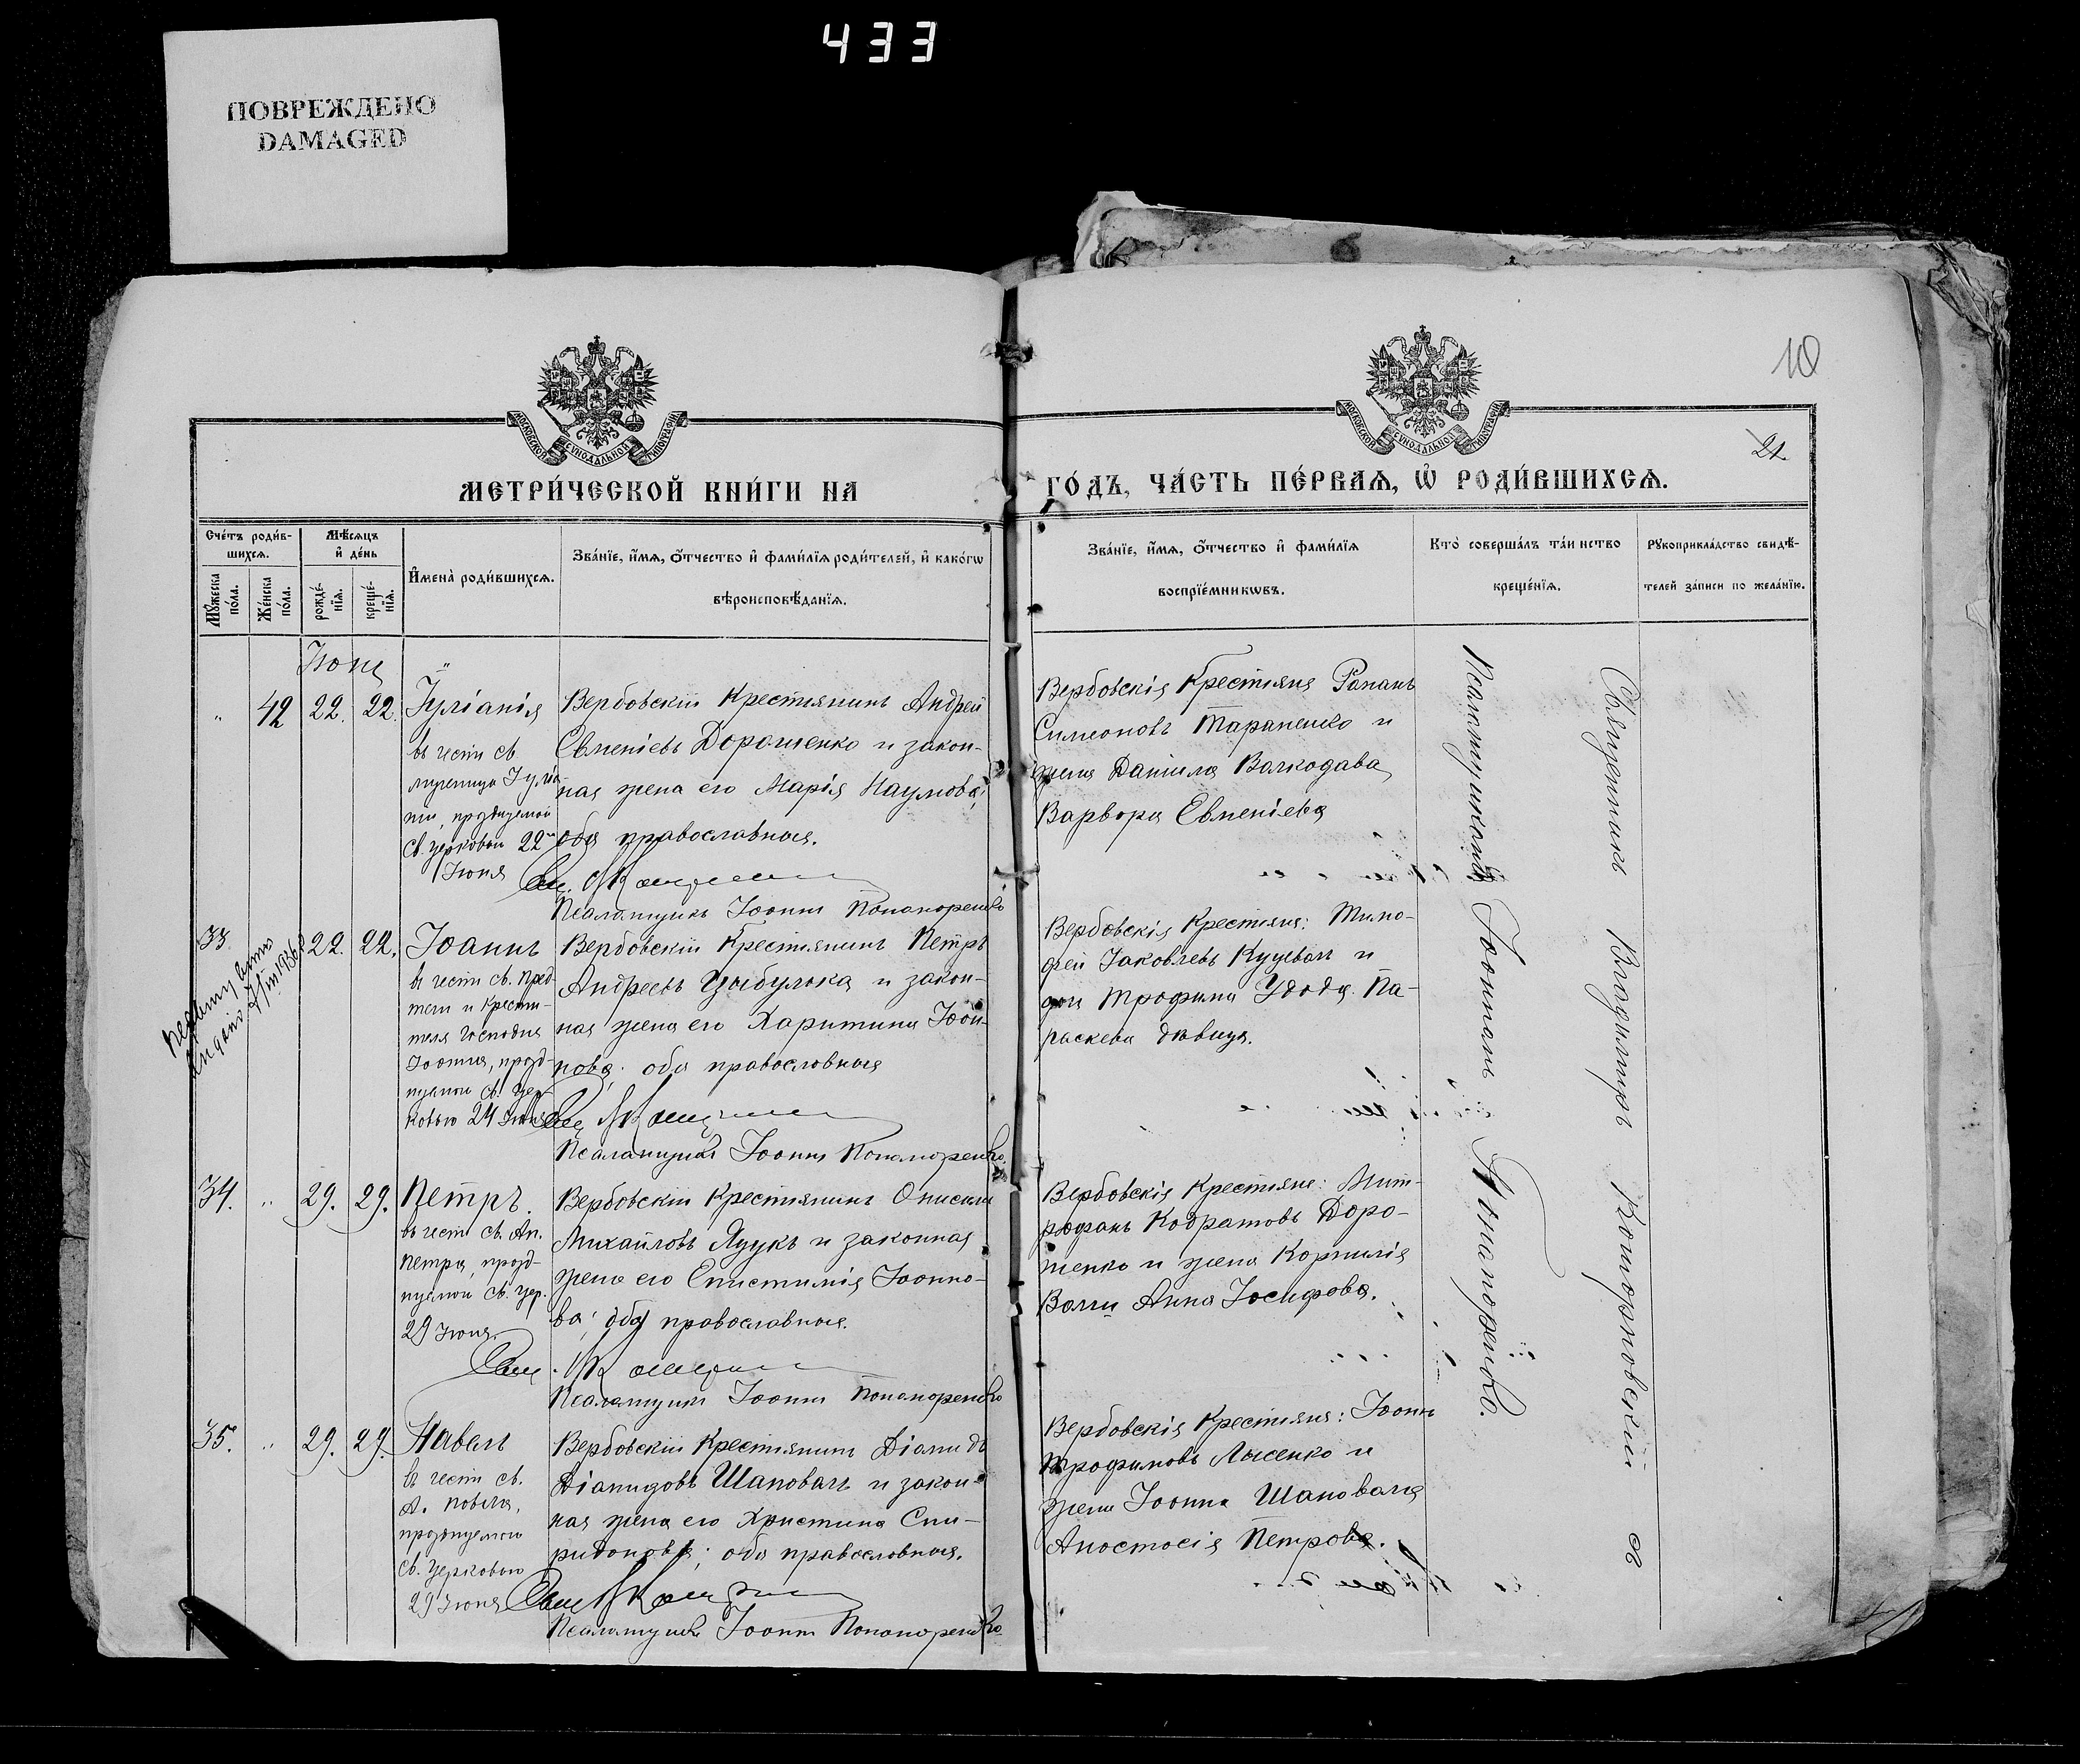 433
ПОВРЕЖДЕНО
DAMAGED
10
21.
МОСКОВСКОЙ СѴНОДАЛЬНОЙ ТИПОГРАФІИ
МОСКОВСКОЙ СѴНОДАЛЬНОЙ ТИПОГРАФІИ
МЕТРИ́ЧЕСКОЙ КНИ́ГИ НА
ГО́ДЪ, ЧА́СТЬ ПЕ́РВАѦ, Ѡ҆ РОДИ́ВШИХСѦ.
Сче́тъ роди́в-
шихсѧ.
Мꙋ́жеска
по́ла.
Же́нска
по́ла.
Мѣ́сѧцъ
и҆ де́нь
рожде́-
нїѧ.
креще́-
нїѧ.
И҆мена̀ роди́вшихсѧ.
Зва́нїе, и҆́мѧ, ѻ҆́тчество и҆ фами́лїѧ роди́телей, и҆ како́гѡ
вѣроисповѣ́данїѧ.
Зва́нїе, и҆́мѧ, ѻ҆́тчество и҆ фами́лїѧ
воспрїе́мникѡвъ.
Кто̀ соверша́лъ та́инство
креще́нїѧ.
Рꙋкоприкла́дство свидѣ́-
телей за́писи по жела́нїю.
Іюня
„ 42 22. 22.
Іуліанія
въ честь св
мученицы Іуліа-
ніи, празднуемой
св. церковью 22
Іюня
Вербовскій Крестьянинъ Андрей
Евменіевъ Дорошенко и закон-
ная жена его Марія Наумова;
оба православные.
Псаломщикъ Іоаннъ Пономаренко
Вербовскія Крестьяне
Симеоновъ Тараненко и
жена Даніила Волкодава
Варвара Евменіева
33 22. 22.
Іоаннъ
въ честь св. Пред-
течи и Крести-
теля Господня
Іоанна, празд-
нуемой св. цер-
ковью 24 Іюня
Вербовскій Крестьянинъ Петръ
Андреевъ Цыбулька и закон-
ная жена его Харитина Іоан-
нова; оба православные
Псаломщикъ Іоаннъ Пономаренко.
Вербовскія Крестьяне: Тимо-
фей Іаковлевъ Куцевалъ и
Трофима Удода Па-
раскева дѣвица.
34. „ 29. 29.
Петръ.
въ честь св. Ап.
Петра, празд-
нуемой св. цер.
29 Іюня.
Вербовскій Крестьянинъ Онисимъ
Михайловъ Яцукъ и законная
жена его Епистимія Іоанно-
ва; оба православные.
Псаломщикъ Іоаннъ Пономаренко
Вербовскія Крестьяне: Мит-
рофанъ Кодратовъ Доро-
шенко и жена Корнилія
Анна Іосифова.
35. „ 29. 29.
Павелъ
въ честь св.
А. Павла,
празднуемой
св. церковью
29 Іюня
Вербовскій Крестьянинъ Діомидъ
Діомидовъ Шаповалъ и закон-
ная жена его Христина Спи-
ридонова; оба православные.
Псаломщикъ Іоаннъ Пономаренко
Вербовскія Крестьяне: Іоаннъ
Трофимовъ Лысенко и
жена Іоанна Шаповала
Анастасія Петрова.
Священникъ Владиміръ Компановскій съ
Псаломщикомъ Іоанномъ Пономаренко.